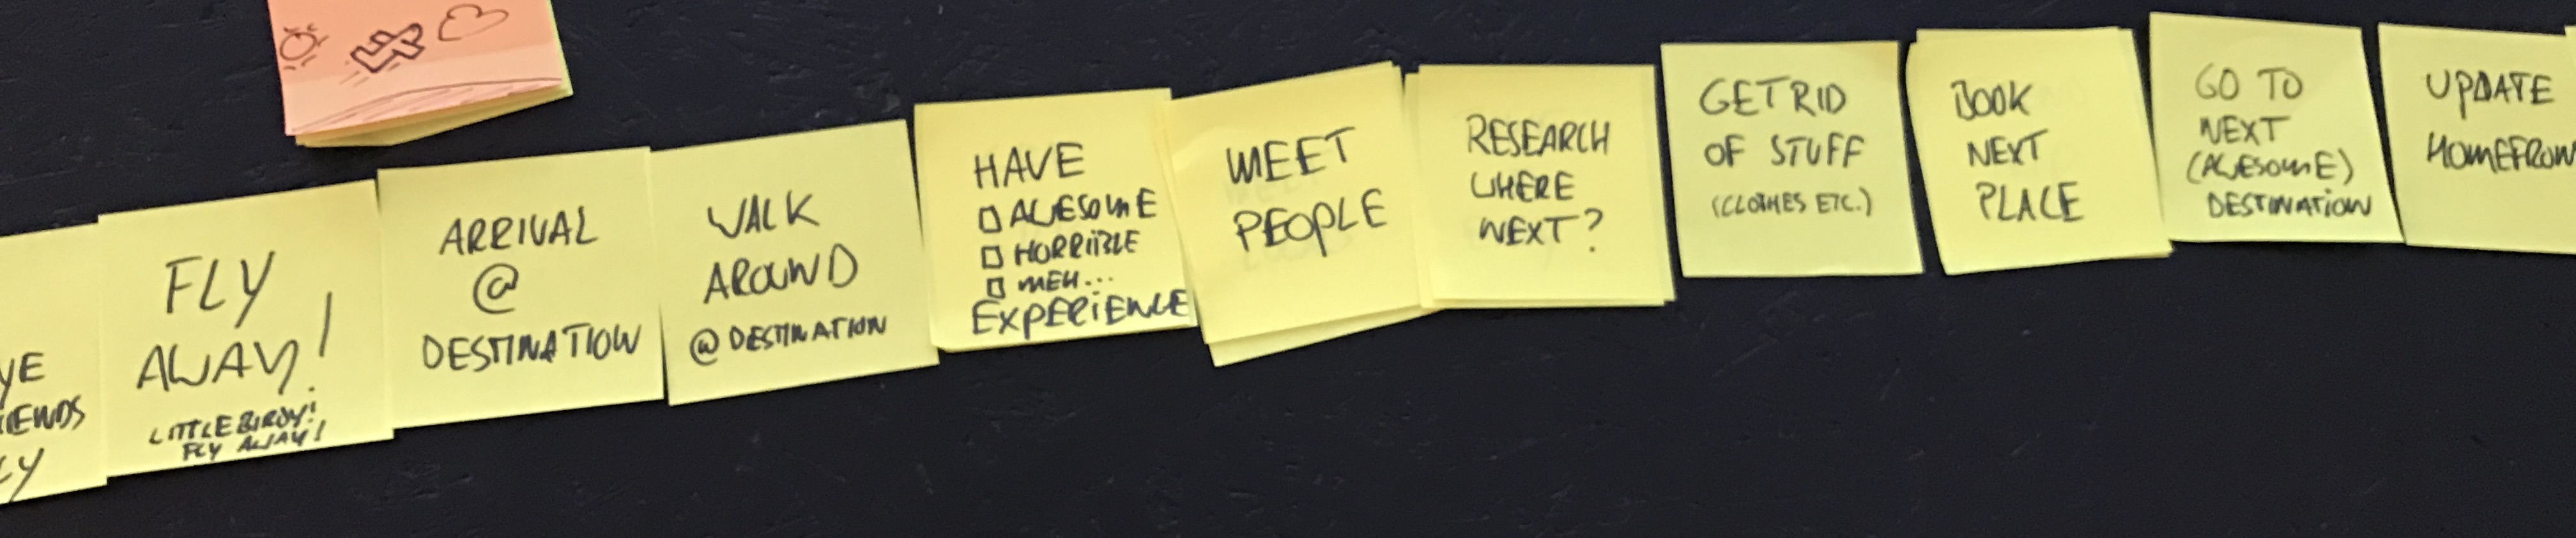 FLY
AWAY!
LITTLE BIRDY!
FLY AWAY!
ARRIVAL
@
DESTINATION
WALK
AROUND
@ DESTINATION
HAVE
AWESOME
HORRIBLE
MEH...
EXPERIENCE
MEET
PEOPLE
RESEARCH
WHERE
NEXT?
GET RID
OF STUFF
(CLOTHES ETC.)
BOOK
NEXT
PLACE
GO TO
NEXT
(AWESOME)
DESTINATION
UPDATE